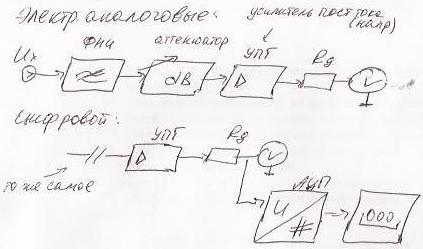 Электр. аналоговые:
усилитель пост тока
(напр)
Ux
ФНЧ
аттенюатор
УПТ
dB
Rg
V
Цифровой:
УПТ
Rg
V
то же самое
АЦП
U
#
000